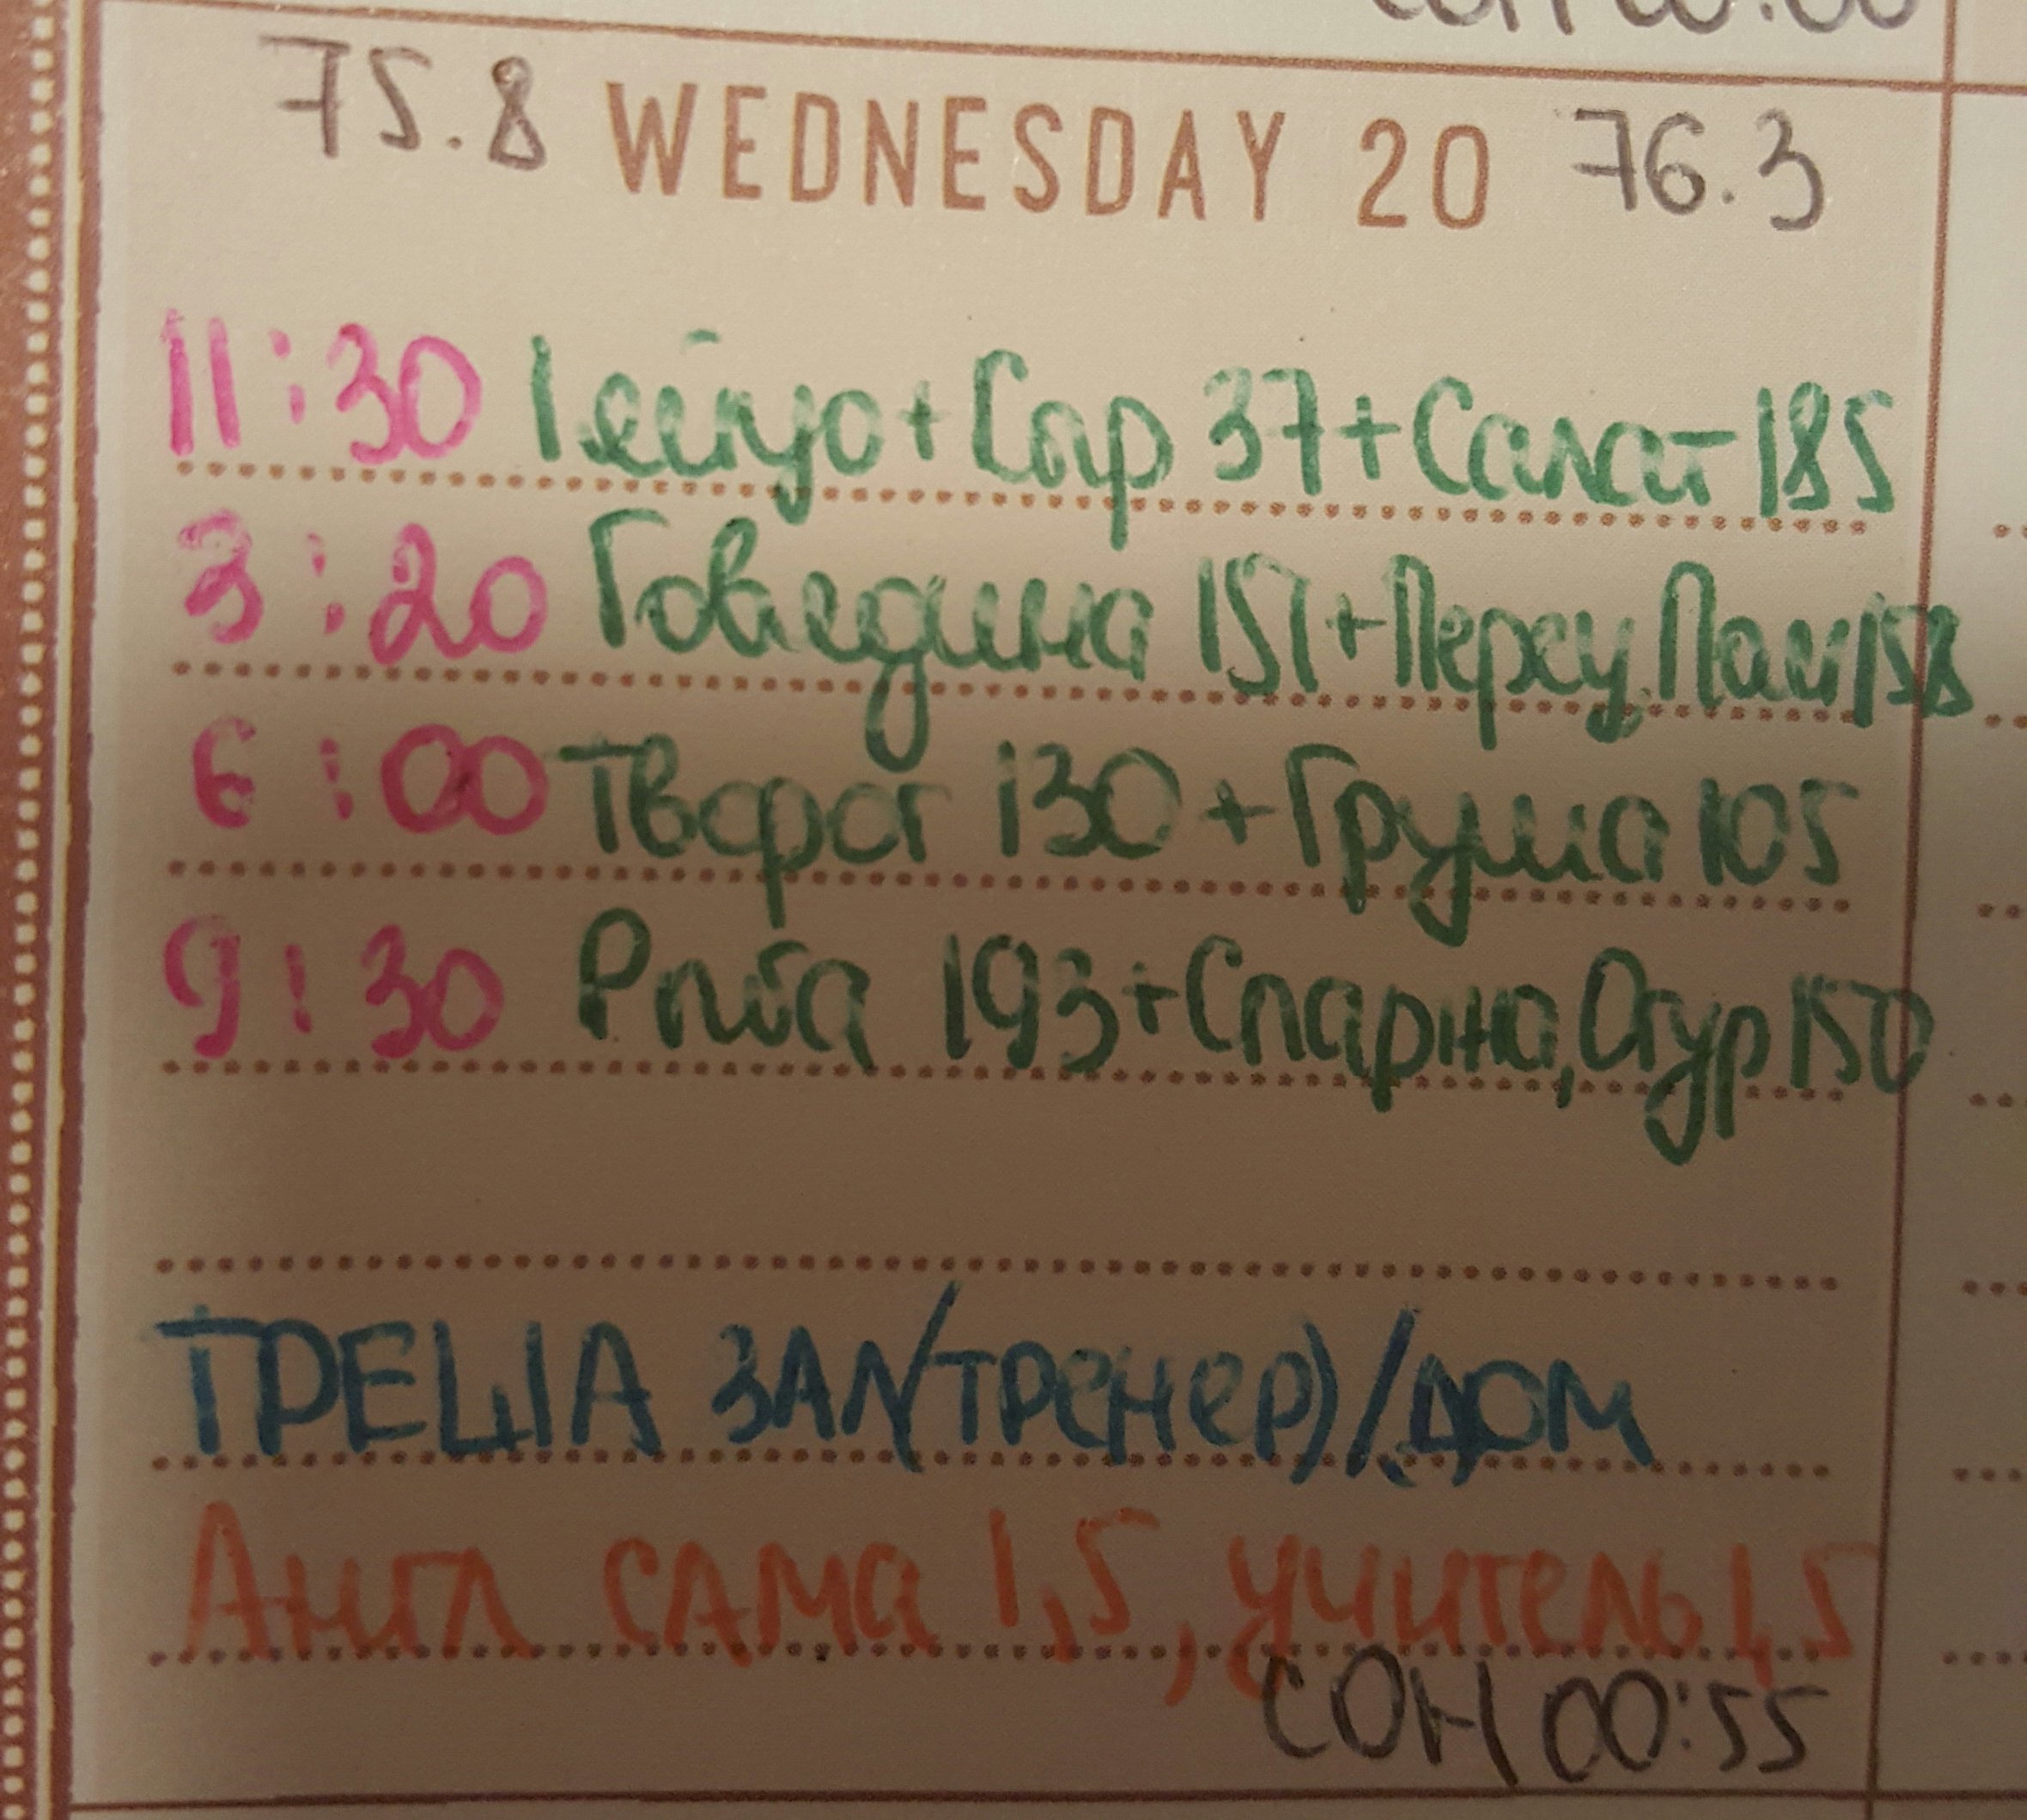 75.8 WEDNESDAY 20 76.3
11:30 1 яйцо + Сыр 37 + Салат 185
3:20 Говядина 151 + Перец, Пом 158
6:00 Творог 130 + Груша 105
9:30 Рыба 193 + Спаржа, Огур 150
ТРЕША ЗАЛ(ТРеНеР)/ДОМ
Англ САМа 1,5, учитель 1,5
СОН 00:55